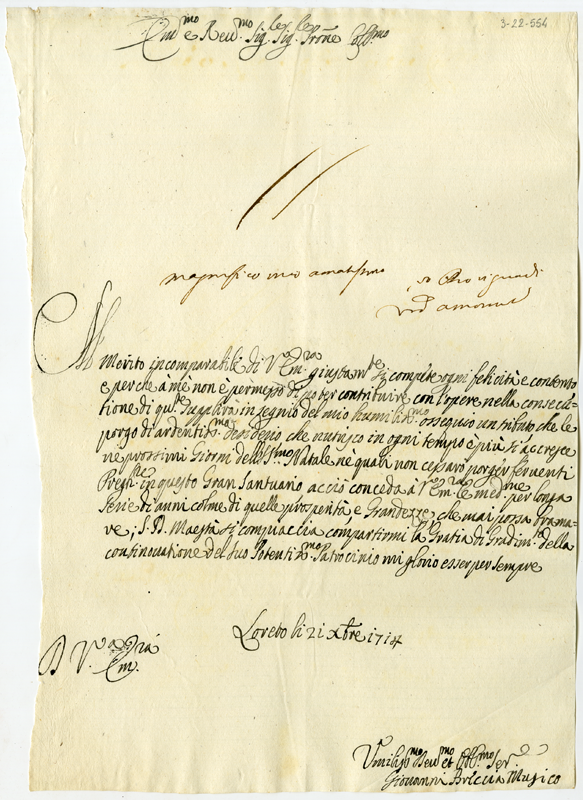 3-22-554
Em.mo e Reu.mo Sig.r Sig.r Prone Coll.mo
magnifico mio amatissimo
Al
Merito incomparabile di V.a Em.ra giustam.te si compete ogni felicità e contento
e perche à me non è permesso di poter contribuire con l'opere nella consecu-
tione di qu.te Supplirà in segnio del mio humiliss.mo ossequio un tributo che le
porgo di ardentiss.mo desiderio che nutrisco in ogni tempo e più si accresce
ne prossimi Giorni del SS.mo Natale nè quali non cessarò porger feruenti
Pregh.re in questo Gran Santuario acciò conceda à V.ra Em.a le med.me per longa
Serie di anni colme di quelle prosperità e Grandezze, che mai possa brama-
re; S.D. Maestà si compiaccia compartirmi la Gratia di Gradim.to della
continouatione del suo Potentiss.mo Patrocinio mi glorio esser per sempre
Loreto li 21 Xbre 1714
D V.a Em.
Vmiliss.mo Deu.mo et Obl.mo Ser.e
Giouanni Breccia Musico